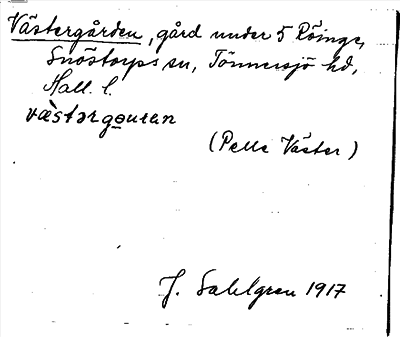 Västergården, gård under 5 Röinge,
Snöstorps sn, Tönnersjö hd,
Hall. l.
västərgɑ̊uɐn
(Pelle Väster)
J. Sahlgren 1917